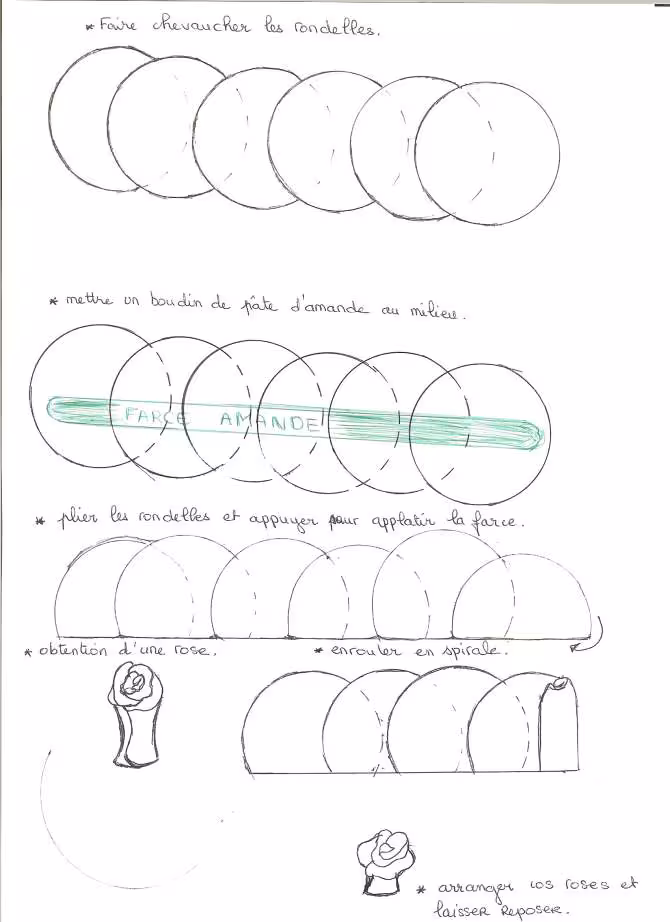 * Faire chevaucher les rondelles.
* mettre un boudin de pâte d'amande au milieu.
FARCE AMANDE
* plier les rondelles et appuyer pour applatir la farce.
* obtention d'une rose.
* enrouler en spirale.
* arranger vos roses et
laisser reposer.